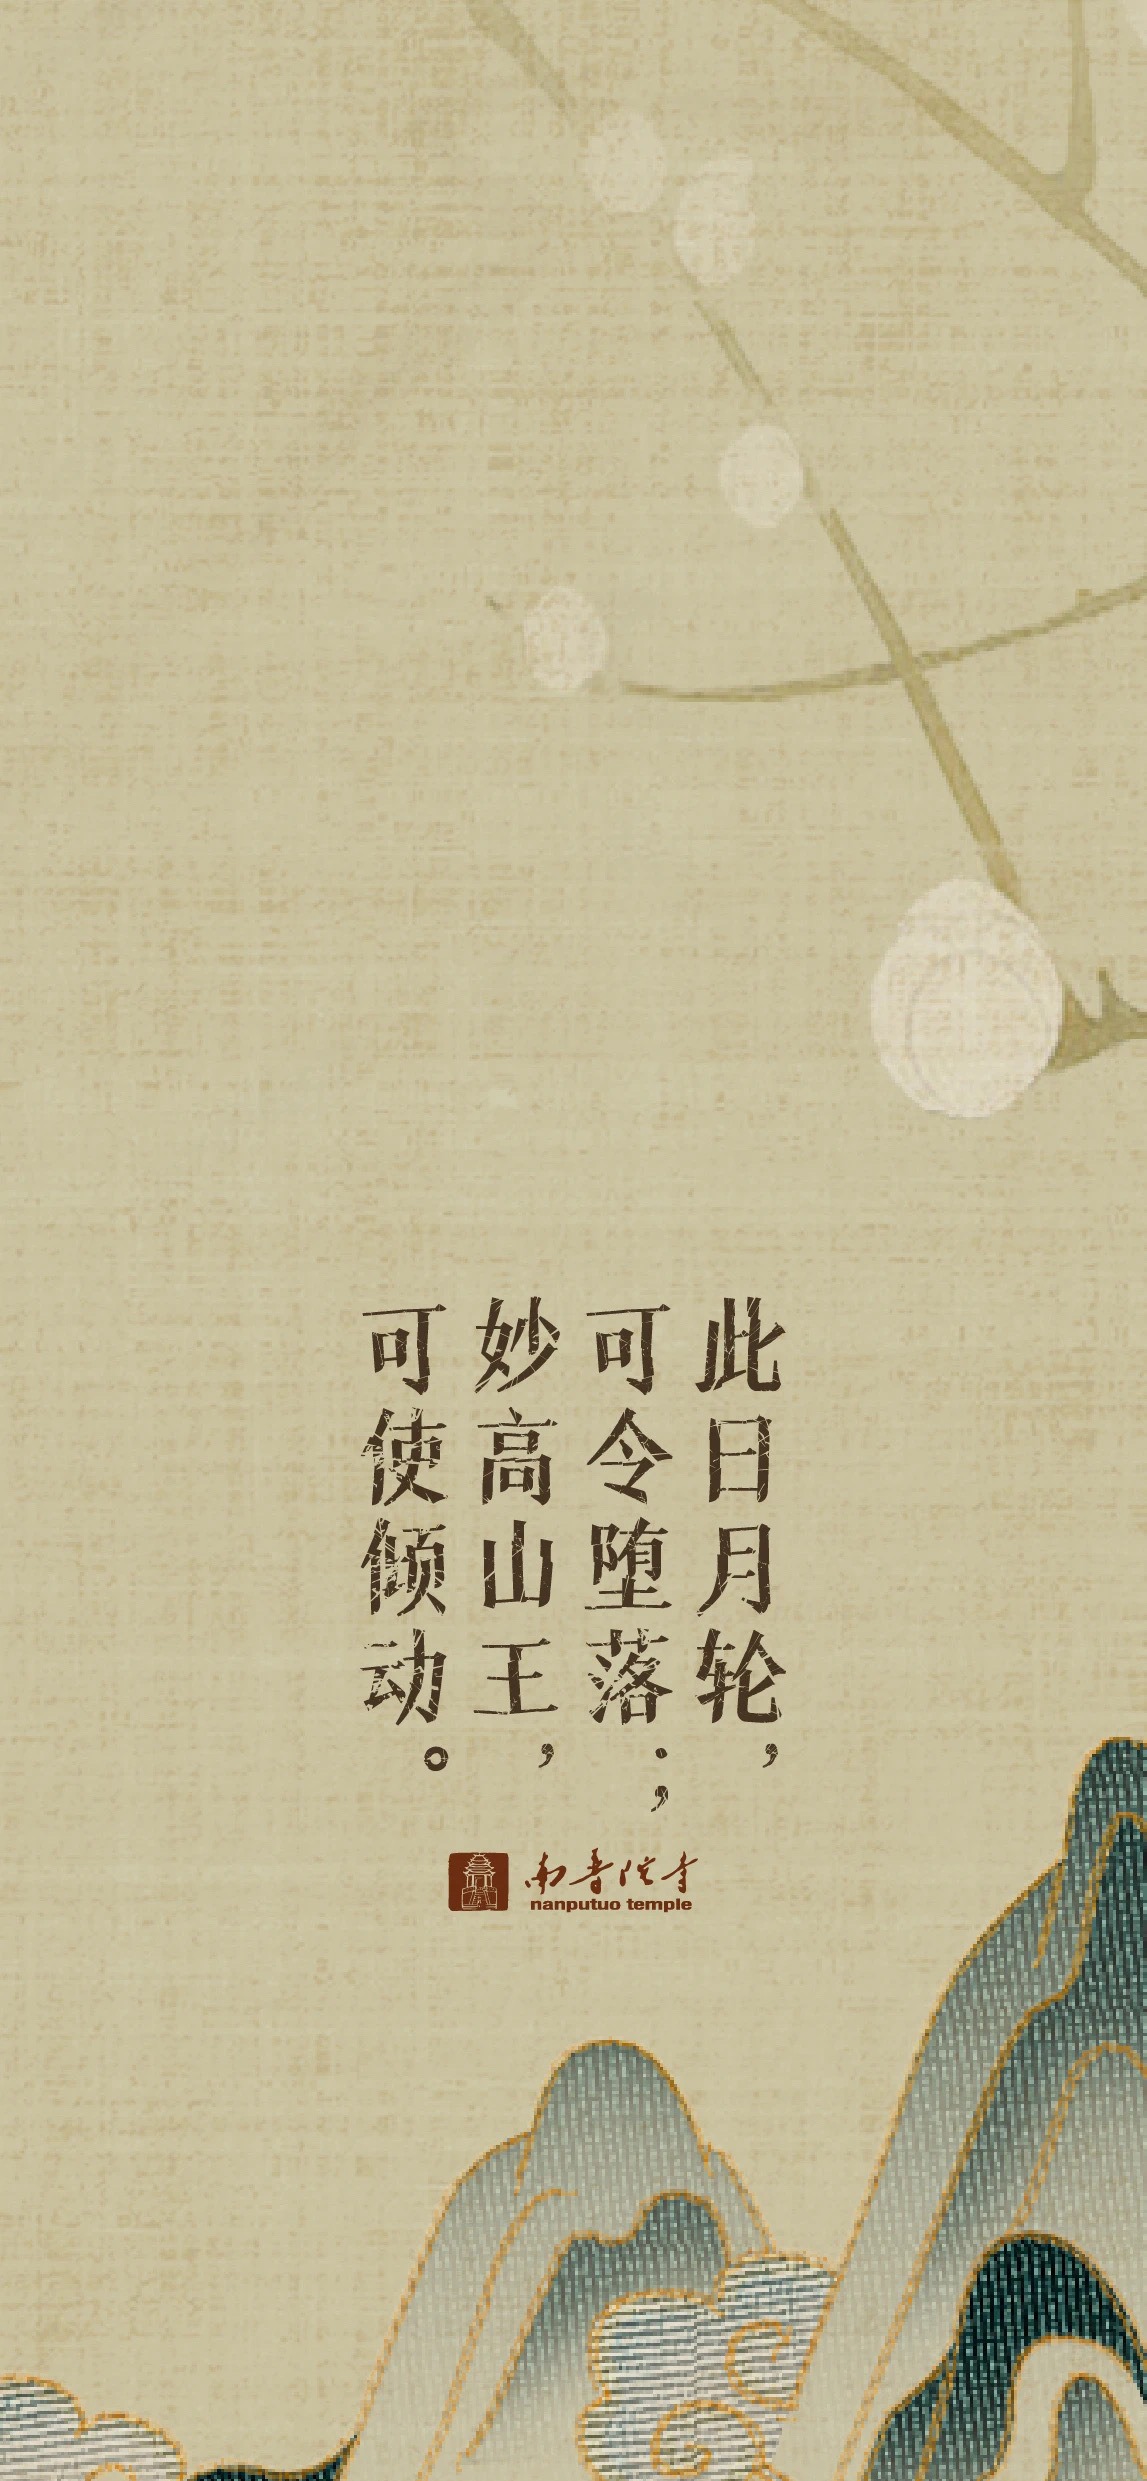 此日月轮，
可令堕落；
妙高山王，
可使倾动。
南普陀寺
nanputuo temple